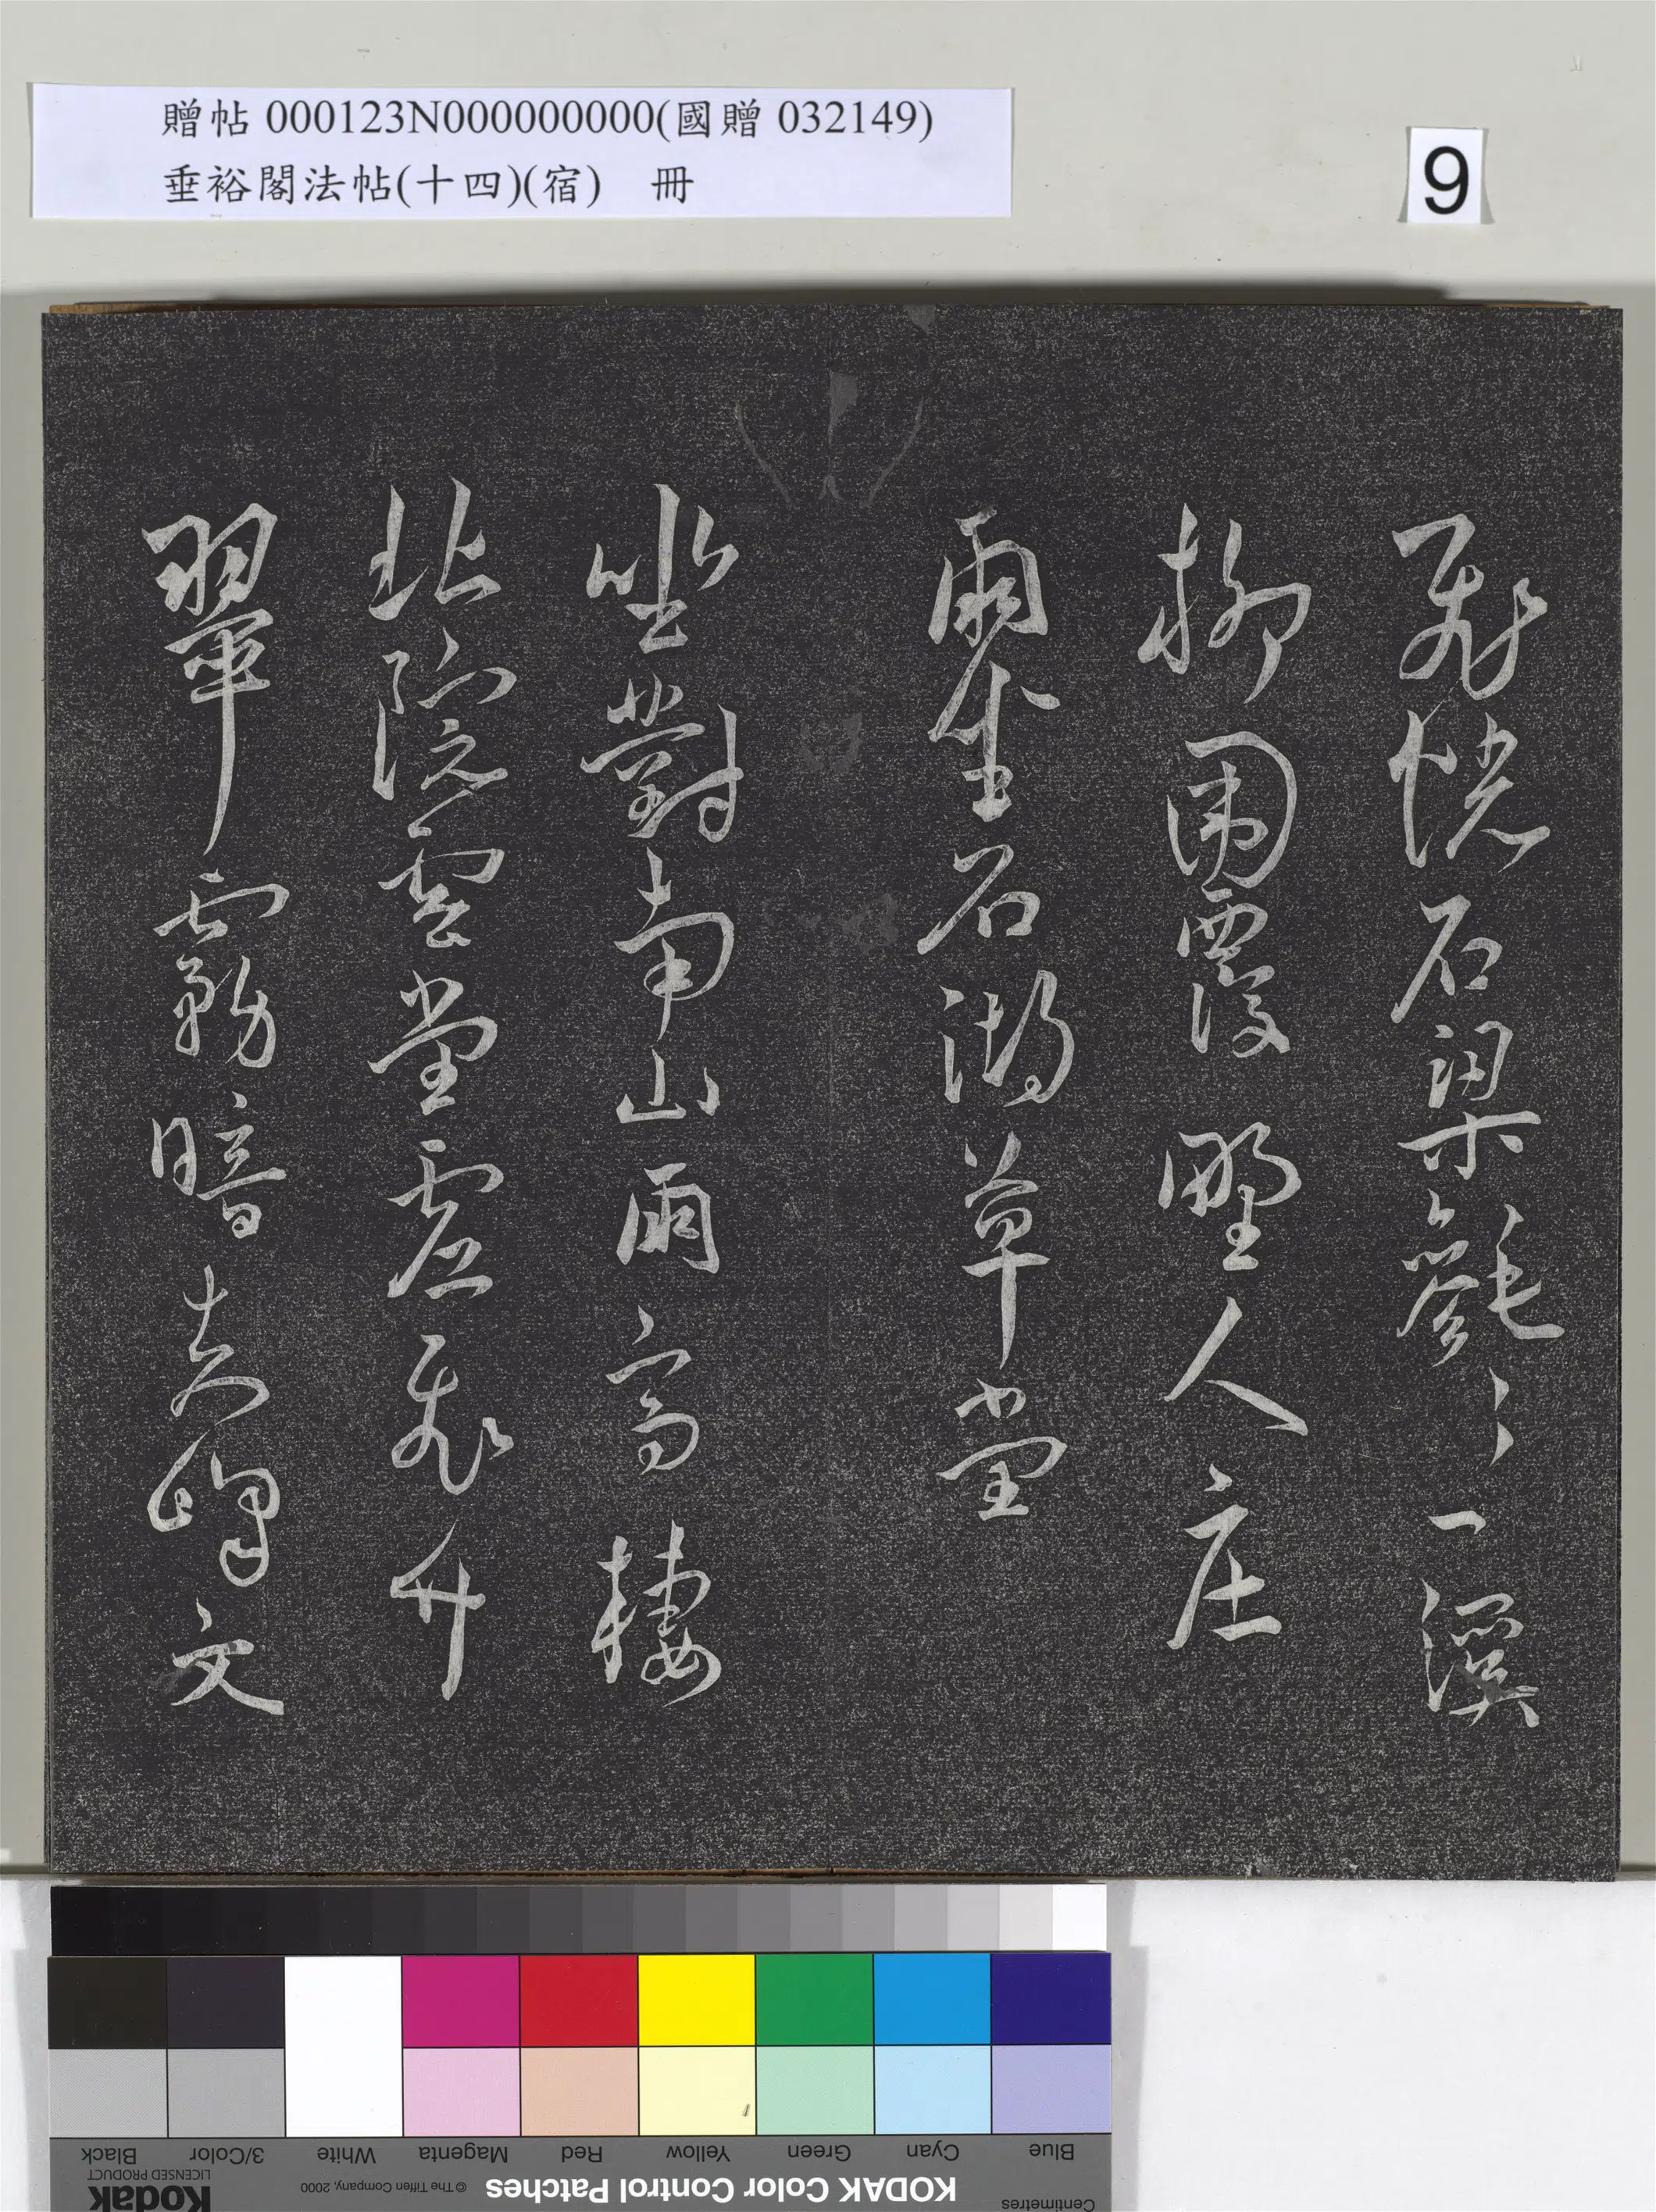 贈帖 000123N000000000(國贈 032149)
垂裕閣法帖(十四)(宿) 冊
9
飛恍石梁毿〻一溪
柳圍覆野人庄
雨坐石湖草堂
坐對南山雨高棲
北院雲堂虛飛竹
翠霧暗失文
Centimetres
Blue Cyan Green Yellow Red Magenta White 3/Color Black
KODAK Color Control Patches © The Tiffen Company, 2000 Kodak LICENSED PRODUCT